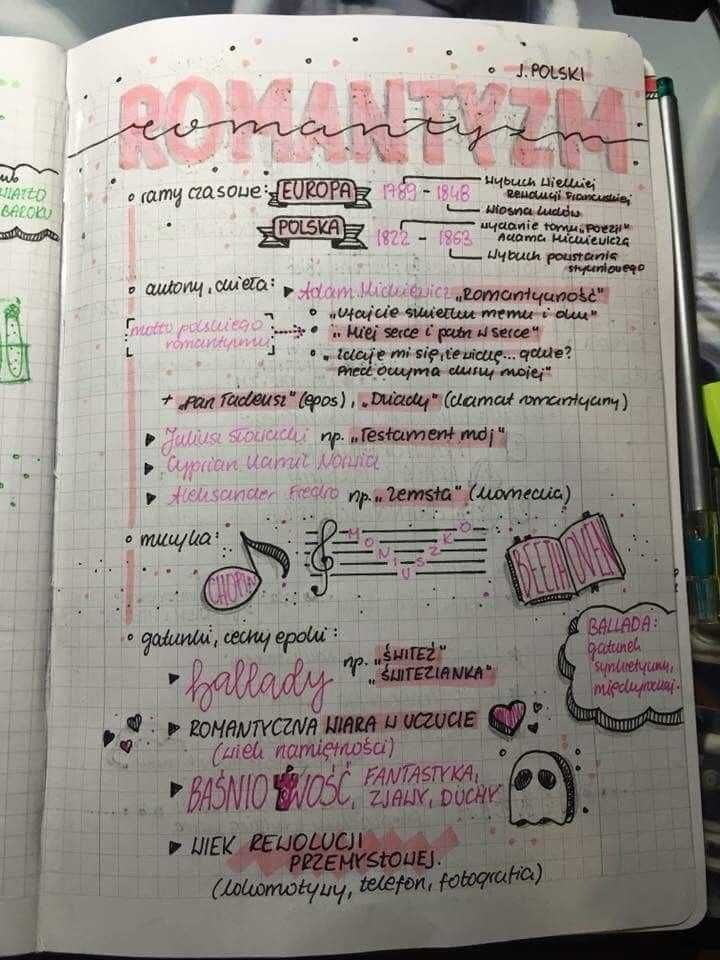 J. POLSKI
ROMANTYZM
romantyzm
ramy czasowe: EUROPA 1789 - 1848
Wybuch Wielkiej
Rewolucji Francuskiej
Wiosna Ludów
POLSKA 1822 - 1863
wydanie tomu „Poezji"
Adama Mickiewicza
Wybuch powstania
styczniowego
autorzy, dzieła:
Adam Mickiewicz „Romantyczność"
motto polskiego
romantyzmu
„ światłu memu i oku"
„Miej serce i patrz w serce"
„Zdaje mi się, że widzę... gdzie?
Przed oczyma duszy mojej"
+ „Pan Tadeusz" (epos), „Dziady" (dramat romantyczny)
Juliusz Słowacki np. „Testament mój"
Cyprian Kamil Norwid
Aleksander Fredro np. „Zemsta" (komedia)
muzyka:
CHOPIN
MONIUSZKO
BEETHOVEN
gatunki, cechy epoki:
BALLADA:
gatunek
synkretyczny,
międzyrodzaj.
ballady np. „ŚWITEŹ"
„ŚWITEZIANKA"
ROMANTYCZNA WIARA W UCZUCIE
(wiek namiętności)
BAŚNIOWOŚĆ, FANTASTYKA,
ZJAWY, DUCHY
WIEK REWOLUCJI
PRZEMYSŁOWEJ.
(lokomotywy, telefon, fotografia)
BAROKU